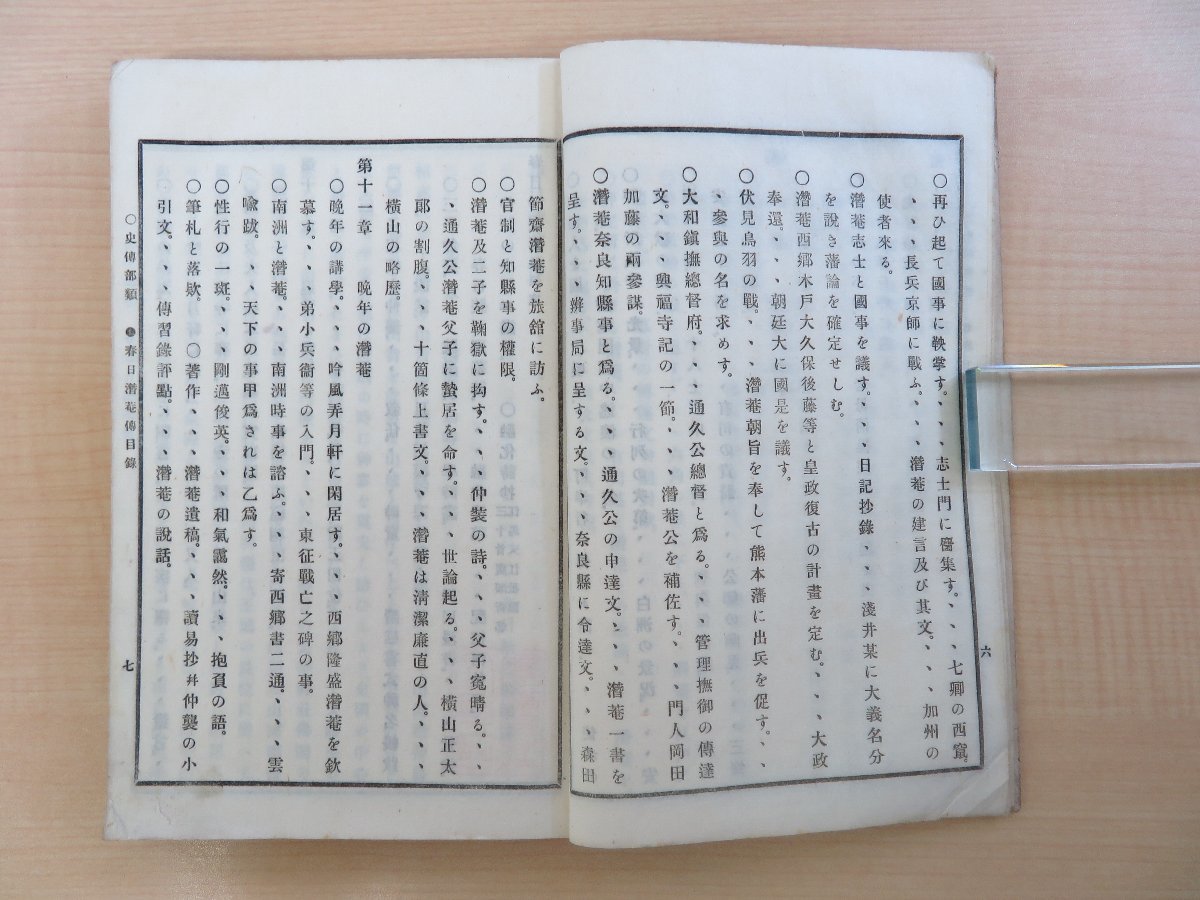 〇再ひ起て國事に鞅掌す。、、、志士門に麕集す。、、、七卿の西竄。
、、、長兵京師に戰ふ。、、、潛菴の建言及び其文。、、、加州の
使者來る。
〇潛菴志士と國事を議す。、、、日記抄錄、、、淺井某に大義名分
を說き藩論を確定せしむ。
〇潛菴西鄕木戶大久保後藤等と皇政復古の計畫を定む。、、、大政
奉還。、、、朝廷大に國是を議す。
〇伏見鳥羽の戰。、、、潛菴朝旨を奉して熊本藩に出兵を促す。、、
、參與の名を求めす。
〇大和鎭撫總督府。、、、通久公總督と爲る。、、、管理撫御の傳達
文。、、、興福寺記の一節。、、、潛菴公を補佐す。、、、門人岡田
加藤の兩參謀。
〇潛菴奈良知縣事と爲る。、、、通久公の申達文。、、、潛菴一書を
呈す。、、、辨事局に呈する文。、、、奈良縣に令達文。、、、森田
六
節齋潛菴を旅舘に訪ふ。
〇官制と知縣事の權限。
〇潛菴及二子を鞠獄に拘す。、、、仲裝の詩。、、、父子寃晴る。、、
、通久公潛菴父子に蟄居を命す。、、、世論起る。、、、橫山正太
郞の割腹。、、、十箇條上書文。、、、潛菴は淸潔廉直の人。、、、
橫山の略歷。
第十一章　晚年の潛菴
〇晚年の講學。、、、吟風弄月軒に閑居す。、、、西鄕隆盛潛菴を欽
慕す。、、、弟小兵衞等の入門。、、、東征戰亡之碑の事。
〇南洲と潛菴。、、、南洲時事を諮ふ。、、、寄西鄕書二通。、、、雲
喩跋。、、、天下の事甲爲されは乙爲す。
〇性行の一斑。、、、剛邁俊英。、、、和氣靄然。、、、抱負の語。
〇筆札と落欵。〇著作、、、潛菴遺稿。、、、讀易抄幷仲襲の小
引文。、、、傳習錄評點。、、、潛菴の說話。
〇史傳部類　春日潛菴傳目錄
七